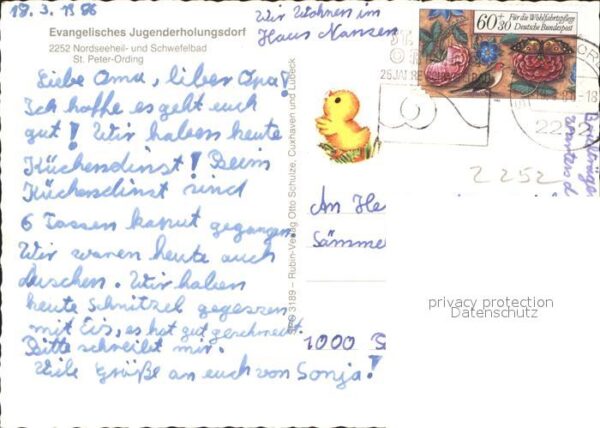 18. 3. 1986
Wir Wohnen im
Haus Nansen
Evangelisches Jugenderholungsdorf
2252 Nordseeheil- und Schwefelbad
St. Peter-Ording
60+30 Für die Wohlfahrtspflege
Deutsche Bundespost
Liebe Oma, liber Opa!
Ich hoffe es geht euch
gut! Wir haben heute
Küchendinst! Beim
Küchendinst sind
6 Tassen kaput gegangen.
Wir waren heute auch
duschen. Wir haben
heute Schnitzel gegessen
mit Eis, es hat gut geschmeckt.
Bitte schreibt mir.
Viele Grüße an euch von Sonja!
3189 – Rubin-Verlag Otto Schulze, Cuxhaven und Lübeck
2252
2252
An He
Sämme
1000
privacy protection
Datenschutz